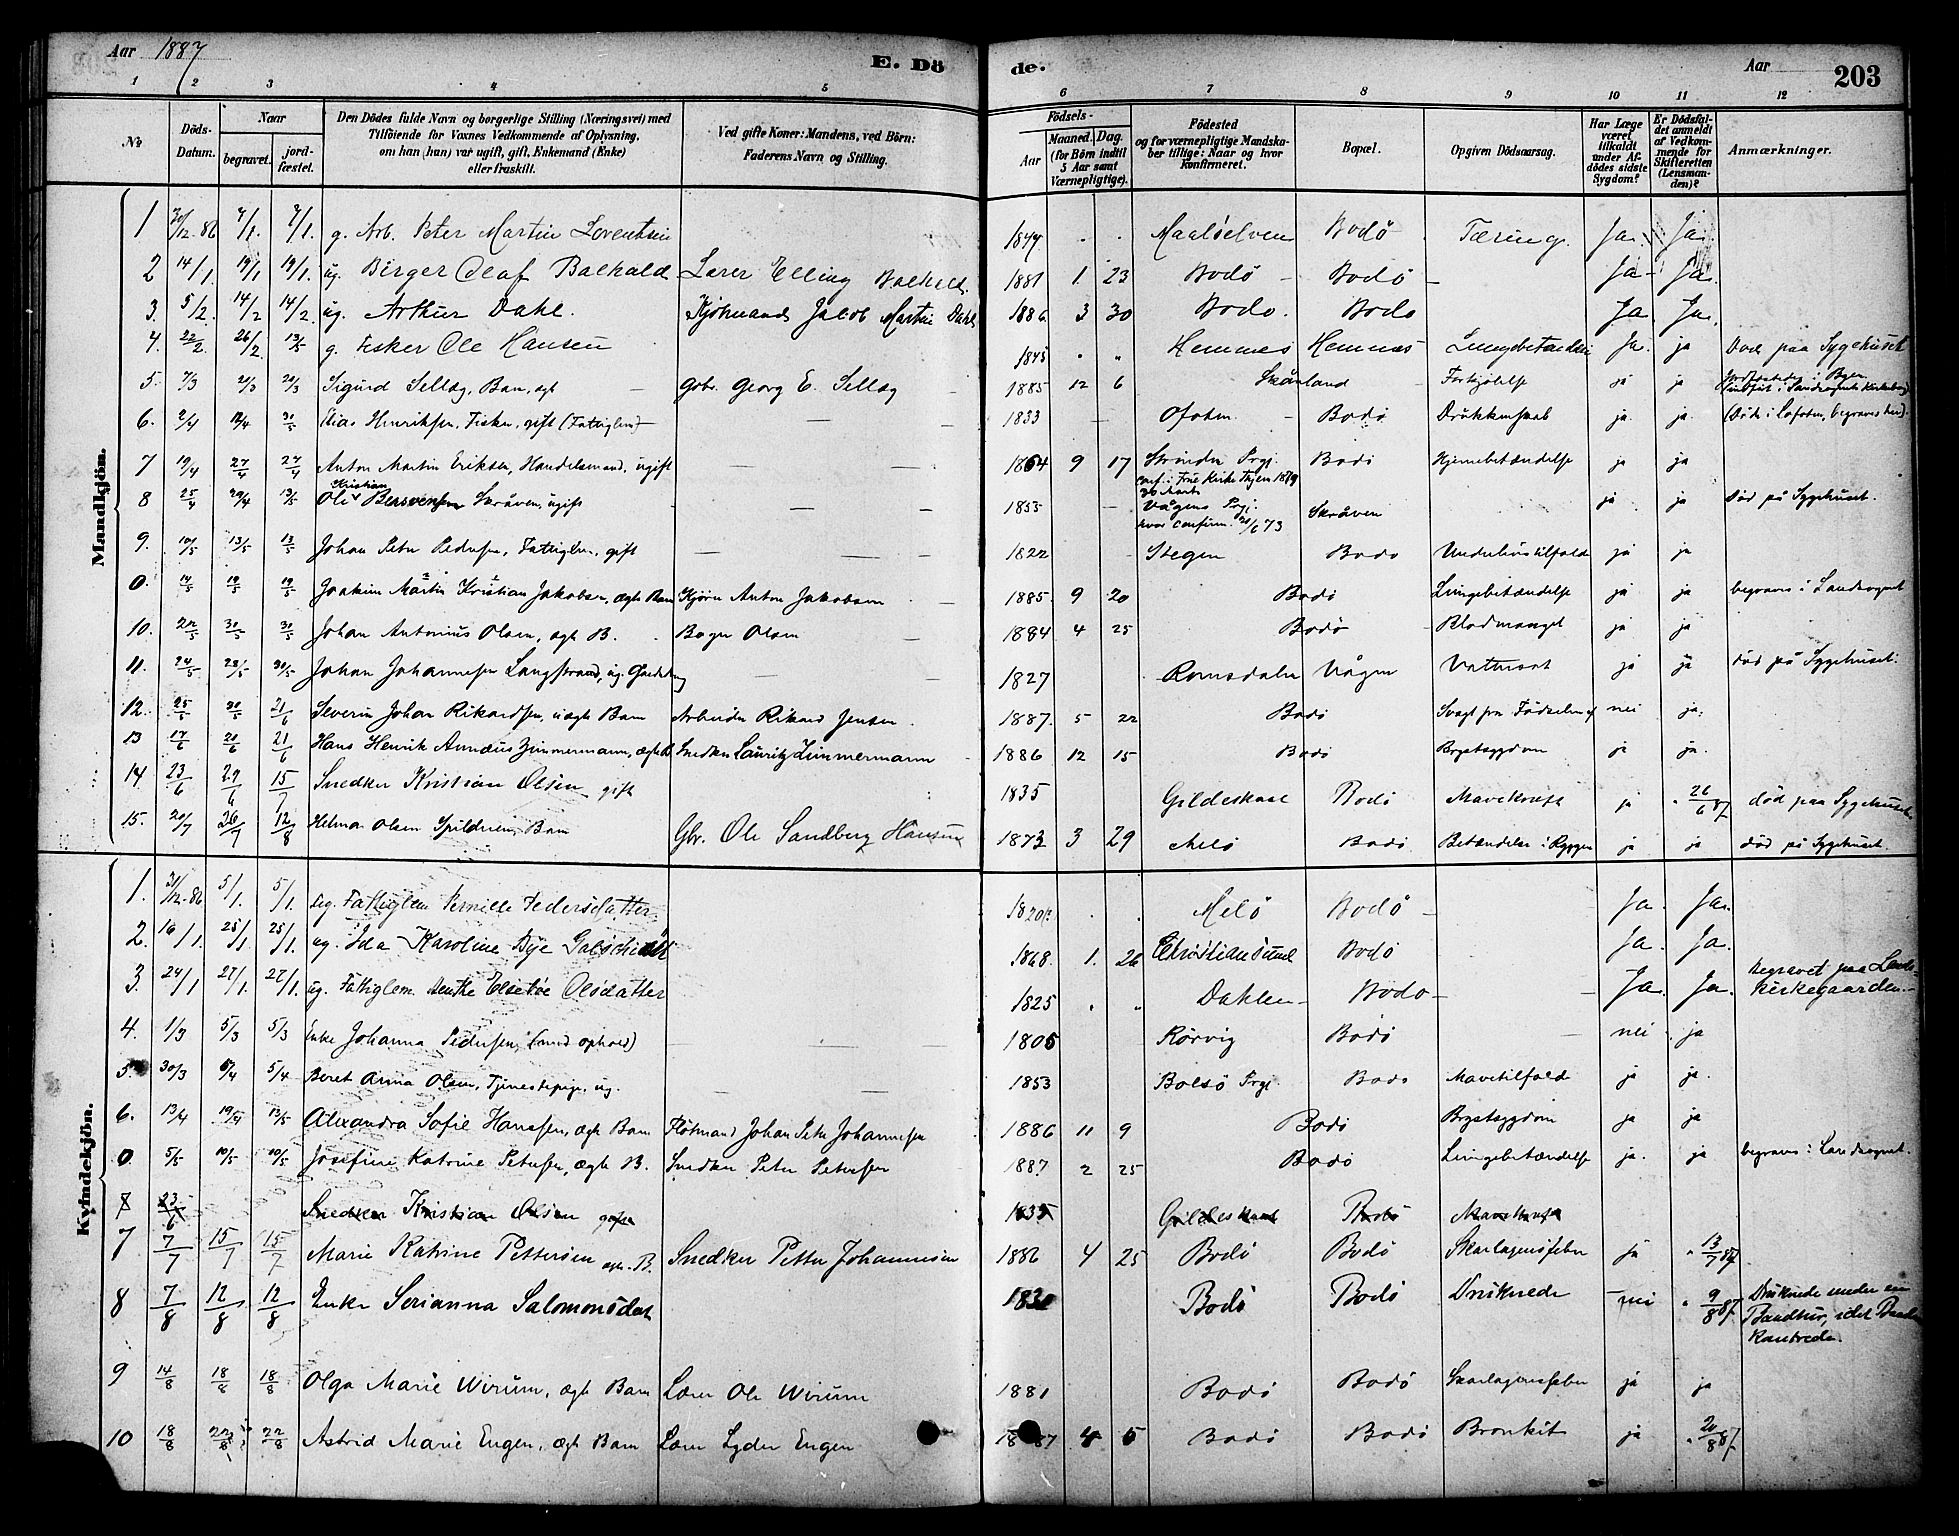 Aar 1887
E. Dö de.
Aar
203
1 2 3 4 5 6 7 8 9 10 11 12
No.
Döds-Datum.
Naar
begravet.
jordfæstet.
Den Dödes fulde Navn og borgerlige Stilling (Næringsvei) med
Tilföiende for Voxnes Vedkommende af Oplysning,
om han (hun) var ugift, gift, Enkemand (Enke)
eller fraskilt.
Ved gifte Koner: Mandens, ved Börn:
Faderens Navn og Stilling.
Födsels-
Aar
Maaned. Dag.
(for Börn indtil
5 Aar samt
Værnepligtige).
Födested
og for værnepligtige Mandskaber tillige: Naar og hvor
konfirmeret.
Bopæl.
Opgiven Dödsaarsag.
Har Læge
været
tilkaldt
under Afdödes sidste
Sygdom?
Er Dödsfaldet anmeldt
af Vedkommende for
Skifteretten
(Lensmanden)?
Anmærkninger.
Mandkjön.
1 30/12 86 7/1. 7/1. g. Arb. Peter Martin Lorentsen 1847 Maalselven Bodö Tæring. Ja. Ja.
2 14/1 19/1 19/1. ug. Birger Olaf Balhald Lærer Elling 1881 1 23 Bodö Bodö Ja Ja.
3. 5/2. 14/2 14/2. ug. Arthur Dahl. Kjöbmand Jacob Martin Dahl 1886. 3 30 Bodo. Bodo Ja Ja.
4. 22/2. 26/2. 13/5 g. Fisker Ole Hansen 1845 Hemnes Hemnes Lungebetændelse Ja. ja Död paa Sygehuset
5. 7/3 20/3 Sigurd Sellæg, Barn, ægt Gbr. Georg E. Sellæg 1885 12 6 Skånland Forkjölelse ja ja
6. 2/4 12/4 30/5 Elias Henriksen, Fisker, gift (Fattiglem) 1833 Ofoten Bodö Drukkenskab ja ja (Död i Lofoten, begraves her).
7 19/4 27/4 27/4 Anton Martin Eriksen, Handelsmand, ugift 1864 9 17 Strinden Prgj. Bodö Hjernebetændelse ja ja
conf. i Frue Kirke Thjem 1879
8 25/4 29/4 13/5 Ole Kristian Bersvensen Skråven, ugift 1853 Vågens Prgj. hvor confirm. 20/6 73 Skråven ja ja Död på Sygehuset.
9. 10/5 13/5 13/5 Johan Peter Pedersen, Fattiglem, gift 1822 Stegen Bodö Underlivstilfælde ja ja
0. 14/5 19/5 19/5 Joakim Martin Kristian Jakobsen, ægte Barn Anton Jakobsen 1885. 9 20 Bodö Lungebetændelse ja ja begraves i Landsognet
10. 22/5 30/5 30/5 Johan Antonius Olsen, ægte B. Bager Olsen 1884 4 25 Bodö Blodmangel ja ja
11. 24/5 28/5 30/5 Johan Johannesen Langstrand, ug. 1827 Romsdalen Vågen Vattersot ja ja död på Sygehuset.
12. 25/5 21/6 Severin Johan Rikardsen, uægte Barn Arbeider Rikard Jensen 1887. 5 22 Bodö Svagt fra Födselen af nei ja.
13 17/6 20/6 21/6 Hans Henrik Annæus Zimmermann, ægte B. Snedker Lauritz Zimmermann 1886 12 15 Bodö Brystsygdom ja ja.
14. 23/6 29/6 15/7 Snedker Kristian Olsen gift 1835 Gildeskaal Bodö Mavekræft ja 26/6 87. död paa Sygehuset
15. 20/7 26/7 12/8 Helmer Olsen Spildren, Barn Gbr. Ole Sandberg Hansen 1873 3 29 Melö Bodö Betændelse i Ryggen ja ja död på Sygehuset.
Kvindekjön.
1. 31/12 86 5/1. 5/1. ug. Fattiglem Pernille Pedersdatter 1820 Melö Bodö Ja. Ja.
2. 16/1. 25/1. 25/1. ug. Ida Karoline Bye 1868. 1. 26 Christianssund Bodö Ja. Ja.
3. 24/1 27/1. 27/1. ug. Fattiglem. Olsdatter 1825 Dahlen Bodö Ja. Ja. Begravet paa Landkirkegaarden.
4. 1/3 5/3 5/3 Enke Johanna Pedersen, (med ophold) 1805 Rörvig Bodö nei ja
5. 30/3 5/4 5/4 Beret Anna Olsen, Tjenestepige, ug. 1853 Bolsö Prgj. Bodö Mavetilfælde ja ja.
6. 13/4 19/4 13/5 Alexandra Sofie Hansen, ægte Barn Flötmand Johan Peter Johannesen 1886 11 9 Bodö Brystsygdom ja ja
0. 5/5 10/5 10/5 Josefine Katrine Petersen, ægte B. Snedker Peter Petersen 1887 2 25 Bodö Lungebetændelse ja. ja begraves i Landsognet.
7 23/6 Snedker Kristian Olsen gift 1835 Gildeskaal Bodö Mavekræft
7 7/7 15/7 15/7 Marie Katrine Pettersen ægte B. Snedker Petter Johannesen 1886 4 25 Bodö Bodö Skarlagensfeber ja 13/7 87.
8 7/8 12/8 12/8 Enke Serianna Salomonsdat 1830 Bodö Bodö Druknede nei 9/8 87. Druknede under en
Baadtur, idet Baaden
kantrede.
9 14/8 18/8 18/8 Olga Marie Wirum, ægte Barn Lærer Ole Wirum 1881 Bodö Bodö Skarlagensfeber ja ja
10 18/8 22/8 22/8 Astrid Marie Engen, ægte Barn Lærer Lyder Engen 1887 4 5 Bodö Bodö Bronkit ja 20/8 87.